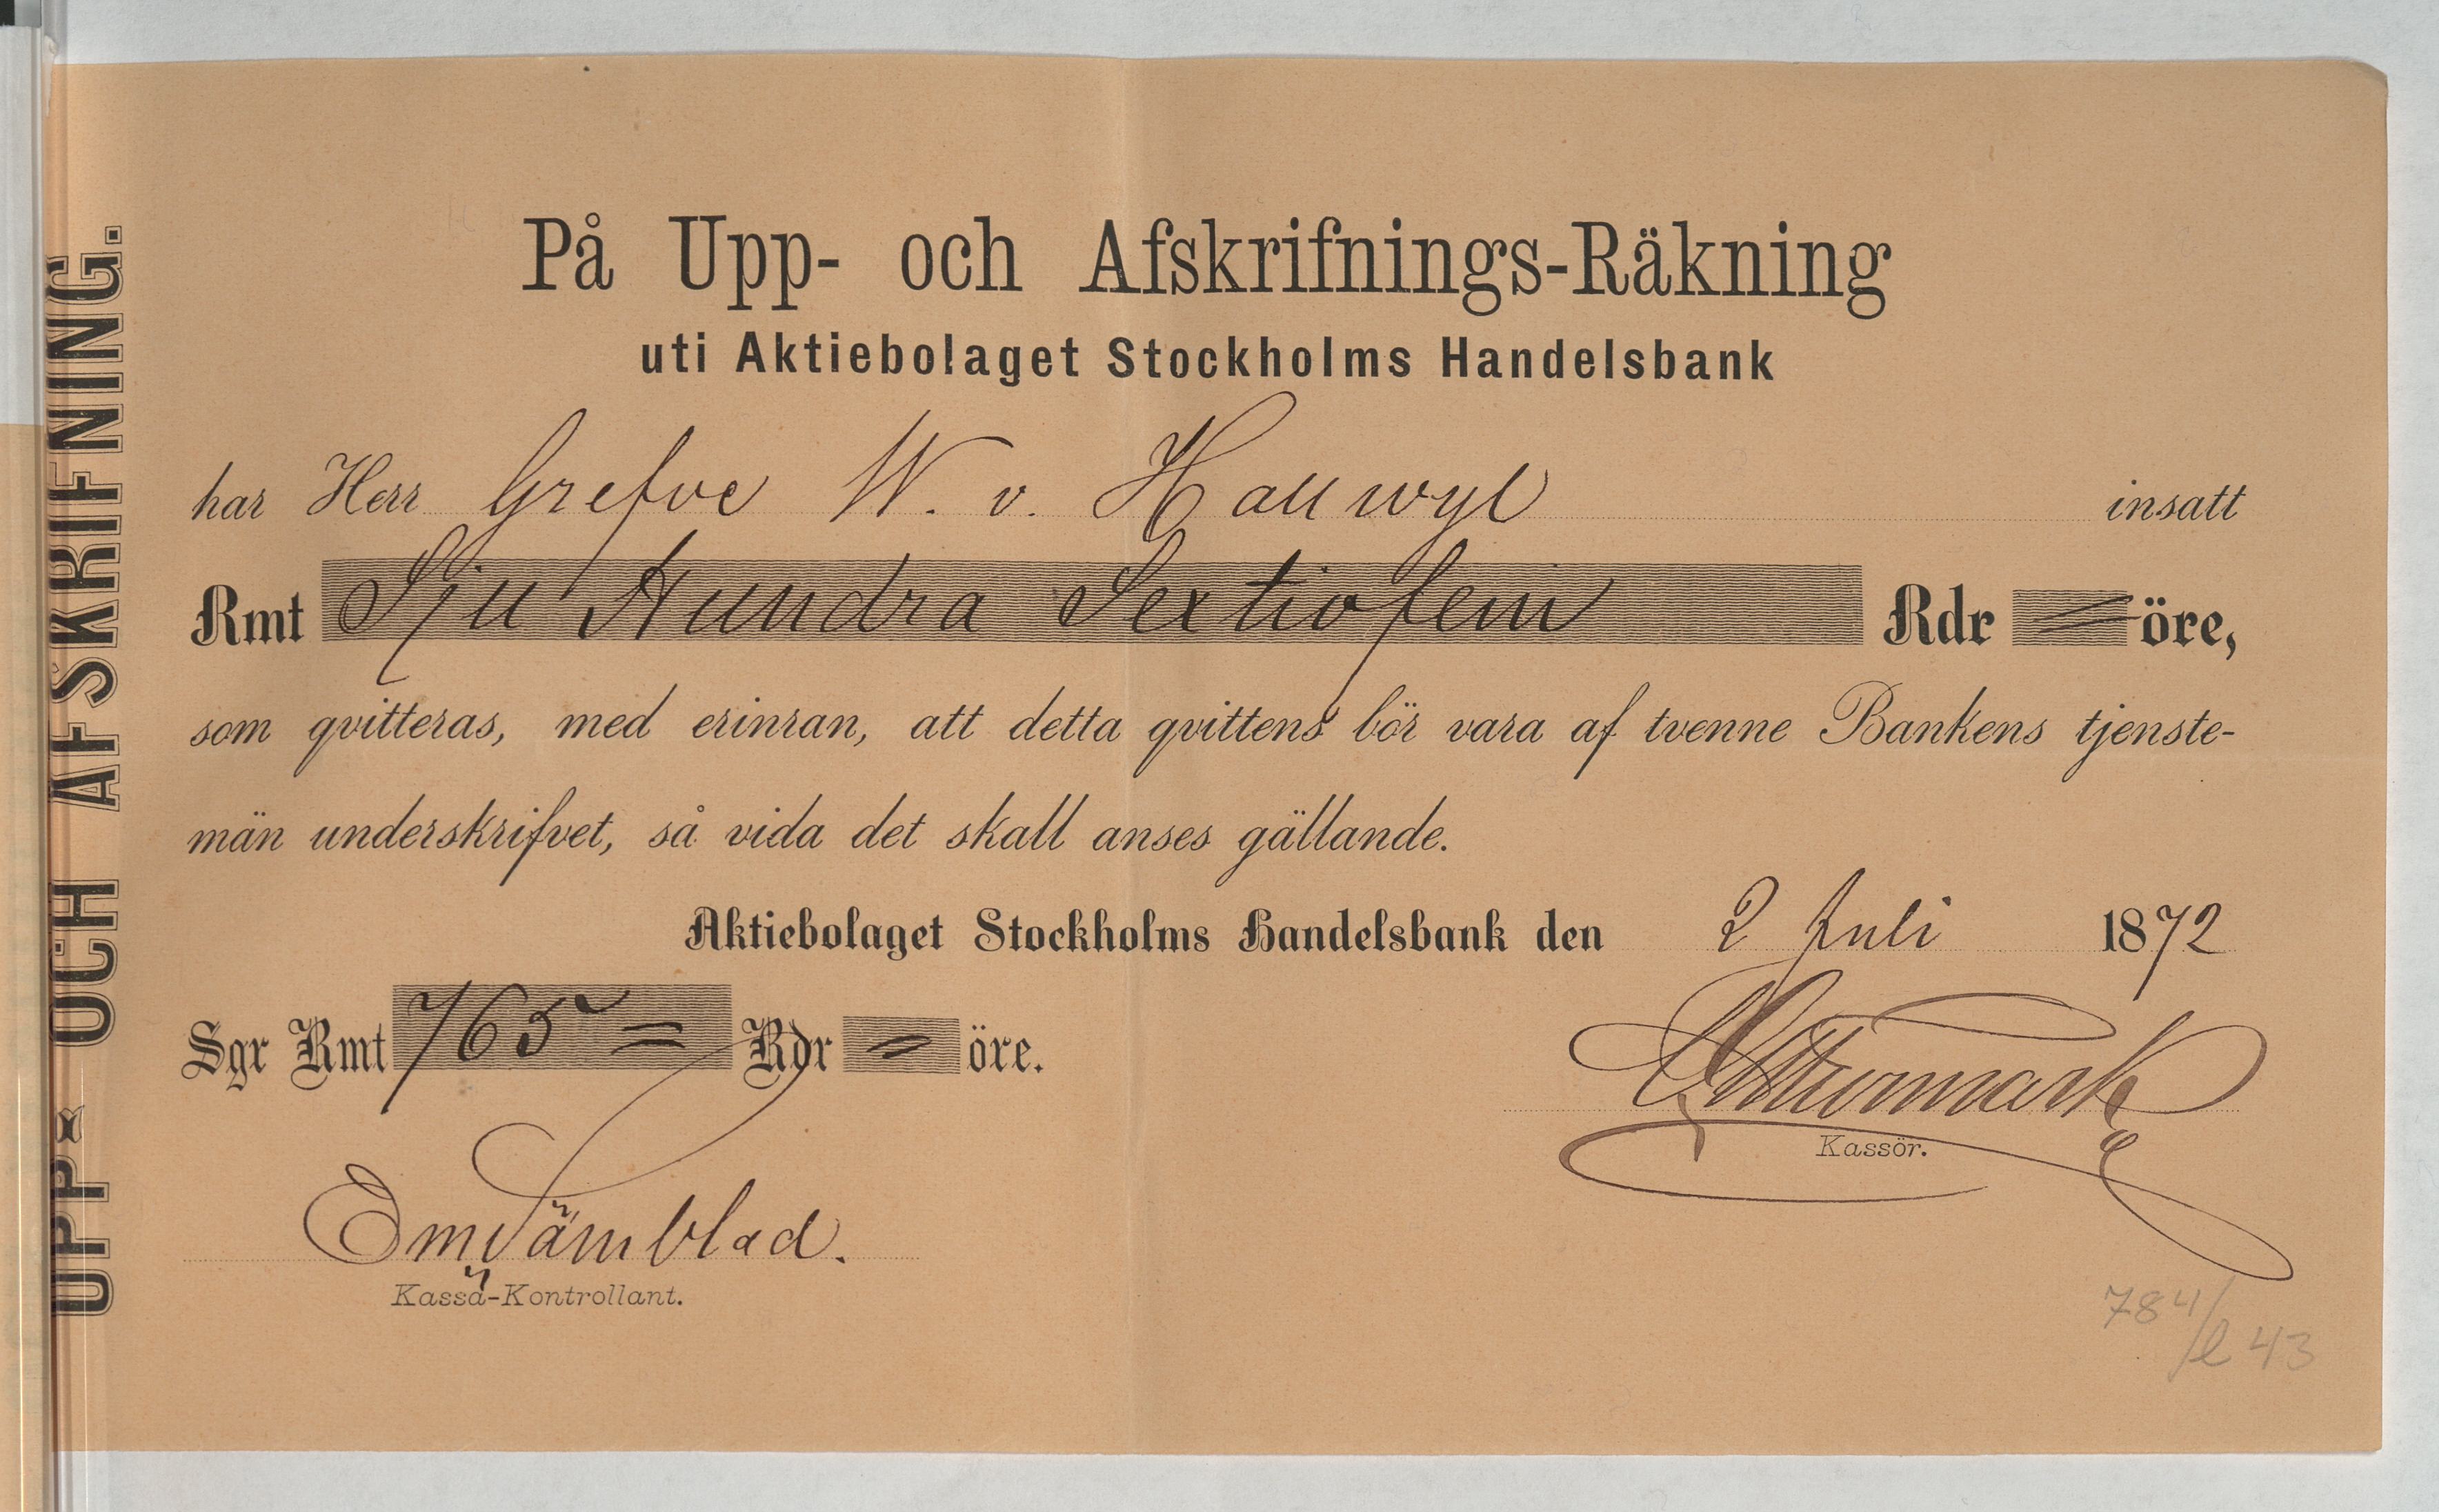 UPP- OCH AFSKRIFNING.
På Upp- och Afskrifnings-Räkning
uti Aktiebolaget Stockholms Handelsbank
har Herr Grefve W. v. Hallwyl insatt
Rmt Sju Hundra Sextiofem Rdr = öre,
som qvitteras, med erinran, att detta qvittens bör vara af tvenne Bankens tjenste-
män underskrifvet, så vida det skall anses gällande.
Aktiebolaget Stockholms Handelsbank den 2 Juli 1872
Sgr Rmt 765 = Rdr = öre.
Kassör.
Kassa-Kontrollant.
784/
l 43